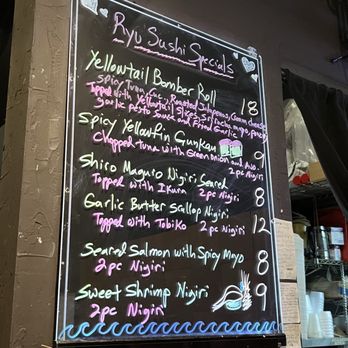 Ryu Sushi Specials
Yellowtail Bomber Roll 18
Spicy Tuna, Cuc, Roasted Jalapeno, Cream cheese
Topped with Yellowtail Slices, sriracha mayo, ponzu
garlic pesto sauce and Fried Garlic
Spicy Yellowfin Gunkan 9
Chopped tuna with Green onion and Avo.
2pc Nigiri
Shiro Maguro Nigiri Seared 8
Topped with Ikura 2pc Nigiri
Garlic Butter Scallop Nigiri 12
Topped with Tobiko 2pc Nigiri
Seared Salmon with Spicy Mayo 8
2pc Nigiri
Sweet Shrimp Nigiri 9
2pc Nigiri